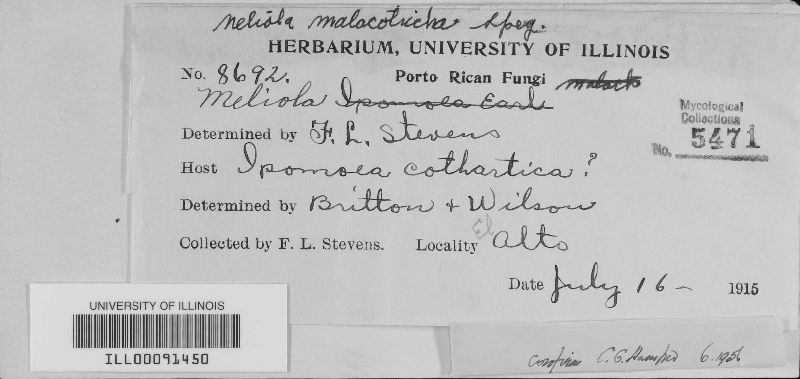 Meliola malacotricha Speg.
HERBARIUM, UNIVERSITY OF ILLINOIS
No. 8692. Porto Rican Fungi
Meliola Ipomoea Earle
Mycological
Collections
No. 5471
Determined by F. L. Stevens
Host Ipomoea cathartica?
Determined by Britton + Wilson
Collected by F. L. Stevens. Locality El Alto
Date July 16 - 1915
UNIVERSITY OF ILLINOIS
ILL00091450
C. G. Hansford 6. 1956